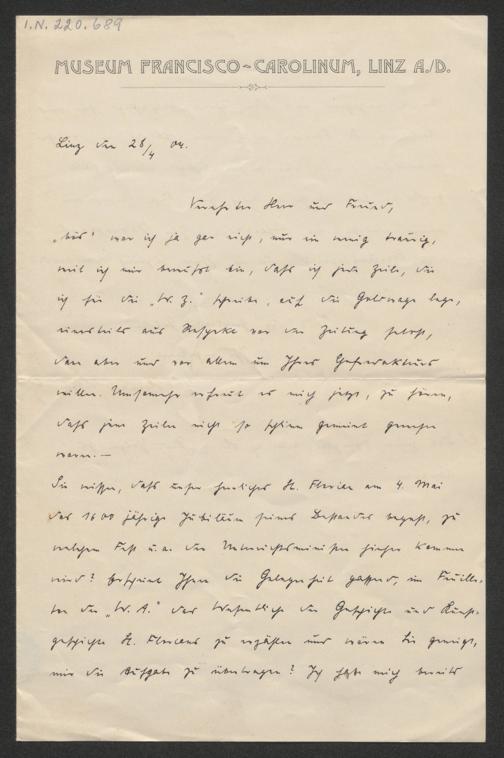 I.N. 220.689
MUSEUM FRANCISCO-CAROLINUM, LINZ A./D.
Linz den 28/4 04.
Verehrter Herr und Freund,
„bös" war ich ja gar nicht, nur ein wenig traurig,
weil ich mir bewußt bin, daß ich jede Zeile, die
ich für die „W. Z." schreibe, auf die Goldwage lege,
einesteils aus Respekt vor der Zeitung selbst,
dann aber und vor allem um Ihres
willen. Umsomehr erfreut es mich jetzt, zu hören,
daß jene Zeilen nicht so schlimm gemeint gewesen
waren.—
Sie wissen, daß unser herrliches St. Florian am 4. Mai
das 1600 jährige Jubiläum seines Bestandes begeht, zu
welchem Fest u.a. der Unterrichtsminister hieher kommen
wird? Erscheint Ihnen die Gelegenheit passend, im Feuille-
ton der „W. A." das Wesentliche der Geschichte und Kunst-
geschichte St. Florians zu erzählen und wären Sie geneigt,
mir die Aufgabe zu übertragen? Ich habe mich bereits